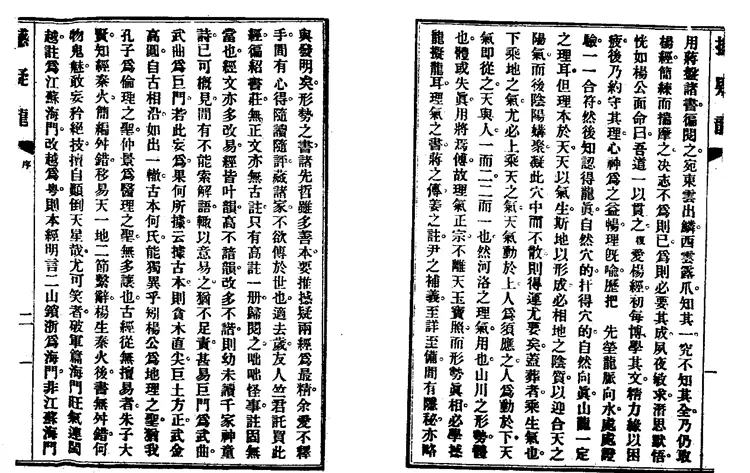 用蔣盤諸書徧閱之宛東雲出鱗西雲露爪知其一究不知其全乃仍取
楊經簡練而揣摩之決志不爲則已爲則必要其成夙夜敏求潛思默悟
恍如楊公面命曰吾道一以貫之復愛楊經初每博學其文精力緣以困
疲後乃約守其理心神爲之益暢理旣喻歷把 先塋龍脈向水處處證
驗一一合符然後知認得龍眞自然穴的扦得穴的自然向眞山龍一定
之理耳但理本於天天以氣生斯地以形成必相地之陰質以迎合天之
陽氣而後陰陽媾聚凝此穴中而不散則得運尤要矣蓋葬者乘生氣也
下乘地之氣尤必上乘天之氣天氣動於上人爲須應之人爲動於下天
氣即從之天與人一而二二而一也然河洛之理氣用也山川之形勢體
也體或失眞用將焉傅故理氣正宗不離天玉寶照而形勢眞相必學撼
龍擬龍耳理氣之書蔣之傳姜之註尹之補義至詳至備間有隱秘亦略
與發明矣形勢之書諸先哲雖多善本要推撼疑兩經爲最精余愛不釋
手間有心得隨讀隨評兹諸家不欲傅於世也適去歲友人竺君託買此
經徧紹書莊無正文亦無古註只有高註一册歸閱之咄咄怪事註固無
當也經文亦多改易經皆叶韻高不諳韻改多不諧則幼未讀千家神童
詩已可概見間有不能索解語輒以意易之猶不足責甚易巨門爲武曲
武曲爲巨門若此妄爲果何所據云據古本則貪木直尖巨土方正武金
高圓自古相沿如出一轍古本何氏能獨異乎矧楊公爲地理之聖猶我
孔子爲倫理之聖仲景爲醫理之聖無多讓也古經從無擅易者朱子大
賢知經秦火簡編舛錯移易天一地二節繫辭楊生秦火後書無舛錯何
物鬼魅敢妄矜絕技擅自顚倒天星哉尤可笑者破軍篇海門旺氣連閩
越註爲江蘇海門改越爲粵則本經明言二山鎖浙爲海門非江蘇海門
序
二